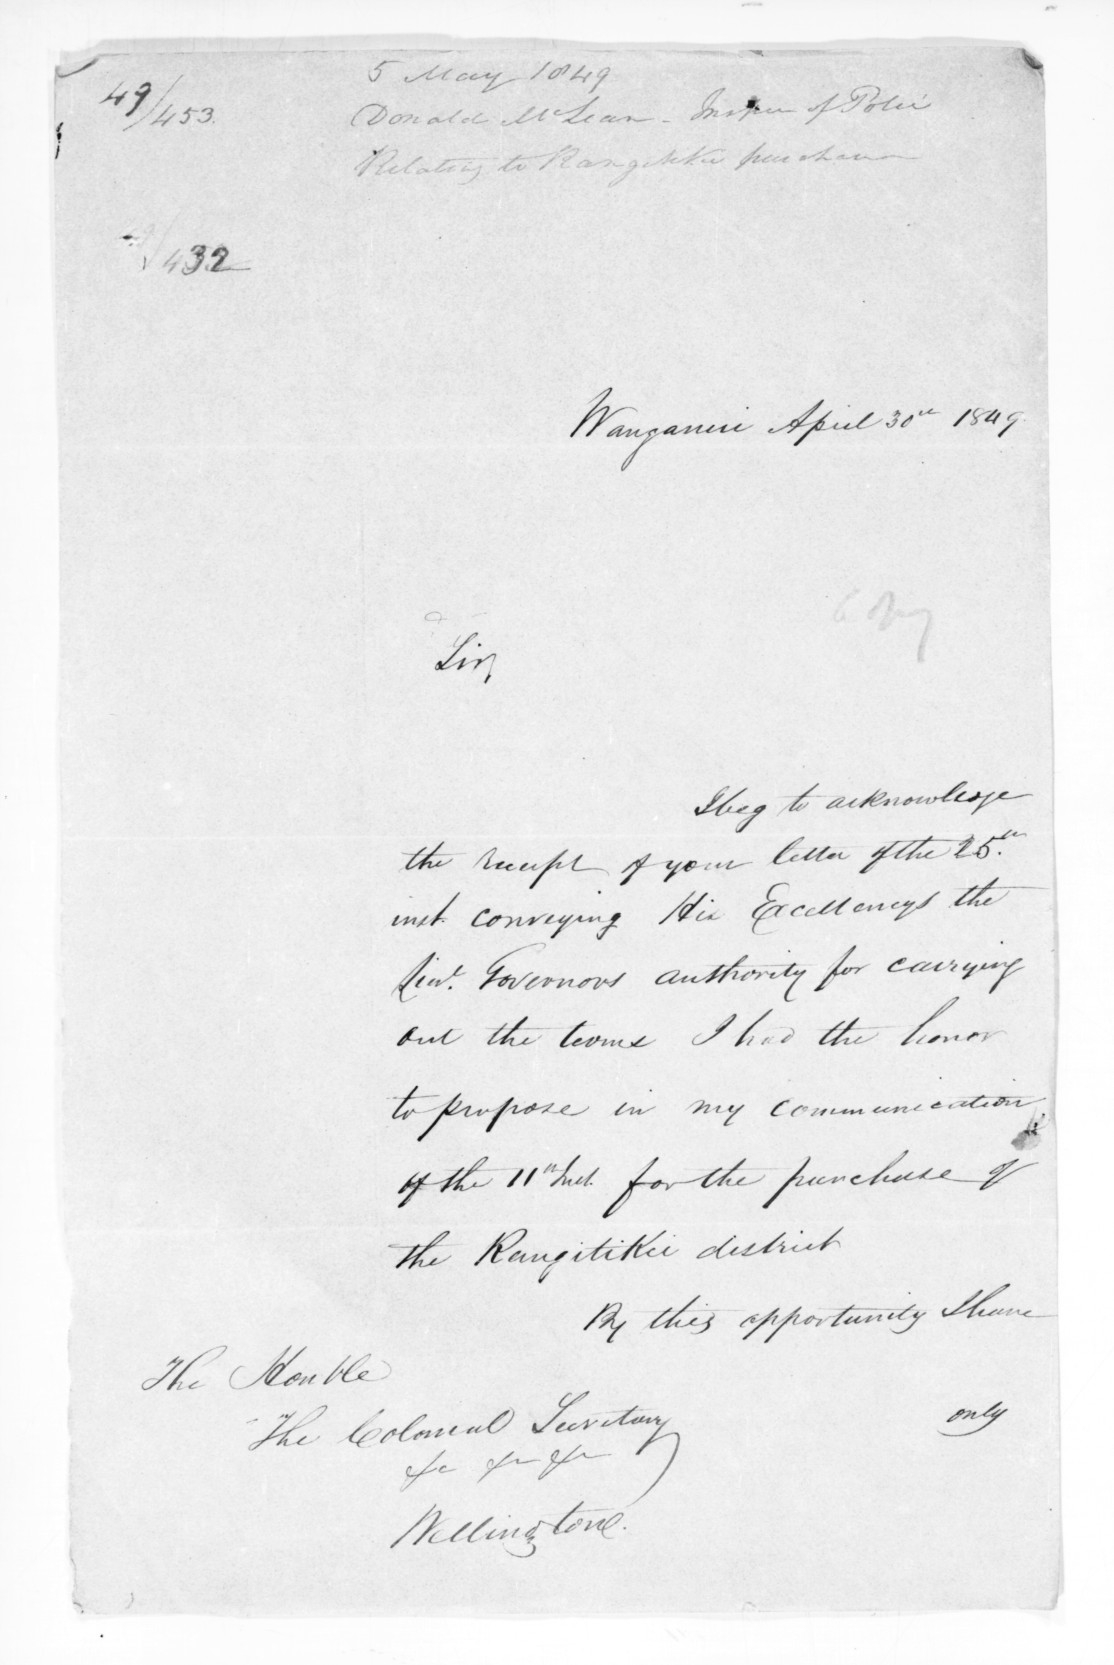 49/453.
5 May 1849
Donald McLean - Inspr of Police
Relating to Rangitikei purchase
432
Wanganui April 30th 1849.
Copy
Sir,
I beg to acknowledge
the receipt of your letter of the 25.th
inst. conveying His Excellencys the
Lieut. Governors authority for carrying
out the terms I had the honor
to propose in my communication
of the 11th Inst. for the purchase of
the Rangitikei district
By this opportunity I have
The Honble
The Colonial Secretary
&c &c &c
Wellington.
only